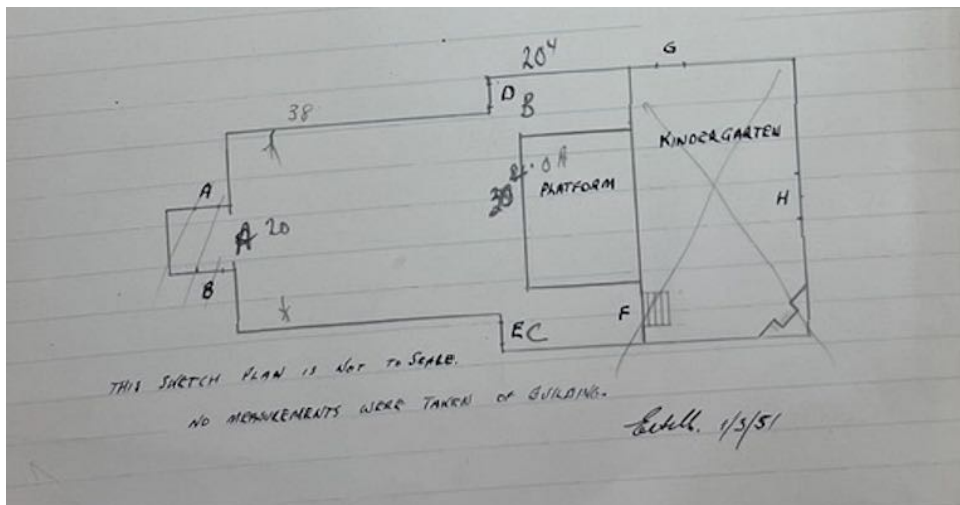 20⁴
G
38
D
B
KINDERGARTEN
A
PLATFORM
H
A 20
B
F
E C
THIS SKETCH PLAN IS NOT TO SCALE.
NO MEASUREMENTS WERE TAKEN OF BUILDING.
1/3/51